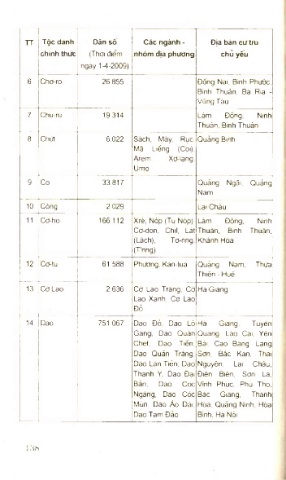 TT Tộc danh chính thức Dân số (Thời điểm ngày 1-4-2009) Các ngành - nhóm địa phương Địa bàn cư trú chủ yếu
6 Chơ-ro 26 855 Đồng Nai, Bình Phước,
Bình Thuận, Bà Rịa -
Vũng Tàu
7 Chu-ru 19 314 Lâm Đồng, Ninh
Thuận, Bình Thuận
8 Chứt 6 022 Sách, Mày, Rục, Quảng Bình
Mã Liềng (Cọi),
Arem, Xơ-lang,
Umo
9 Co 33 817 Quảng Ngãi, Quảng
Nam
10 Cống 2 029 Lai Châu
11 Cơ-ho 166 112 Xrê, Nộp (Tu Nốp), Lâm Đồng, Ninh
Cơ-don, Chil, Lat Thuận, Bình Thuận,
(Lách), Tơ-ring Khánh Hòa
(T'ring)
12 Cơ-tu 61 588 Phương, Kan-tua Quảng Nam, Thừa
Thiên - Huế
13 Cờ Lao 2 636 Cờ Lao Trắng, Cờ Hà Giang
Lao Xanh, Cờ Lao
Đỏ
14 Dao 751 067 Dao Đỏ, Dao Lô Hà Giang, Tuyên
Gang, Dao Quần Quang, Lào Cai, Yên
Chẹt, Dao Tiền, Bái, Cao Bằng, Lạng
Dao Quần Trắng, Sơn, Bắc Kạn, Thái
Dao Làn Tiẻn, Dao Nguyên, Lai Châu,
Thanh Y, Dao Đại Điện Biên, Sơn La,
Bản, Dao Cóc Vĩnh Phúc, Phú Thọ,
Ngáng, Dao Cóc Bắc Giang, Thanh
Mùn, Dao Áo Dài, Hóa, Quảng Ninh, Hòa
Dao Tam Đảo Bình, Hà Nội
138